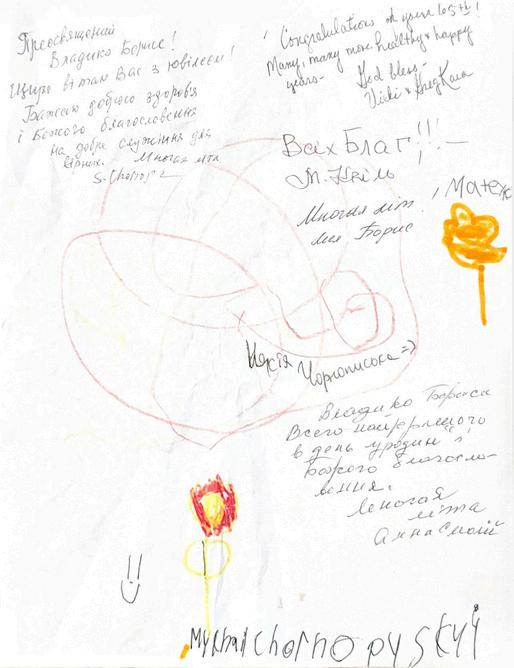 Преосвященний
Владико Борисе!
Щиро вітаю Вас з ювілеєм!
Бажаю доброго здоров'я
і Божого благословення
на добре служіння для
вірних. Многая літа
Congratulations on your 65th!
Many, many more healthy & happy
years-
God bless-
Vicki & Greg
Всіх Благ!!!
Многая літ
Борис
Чорнописка =)
Владико Бориса
Всего найкращого
в день уродин і
Божого благосло-
вення.
Многая
літа
Анна
Mykhail Chornopyskyy